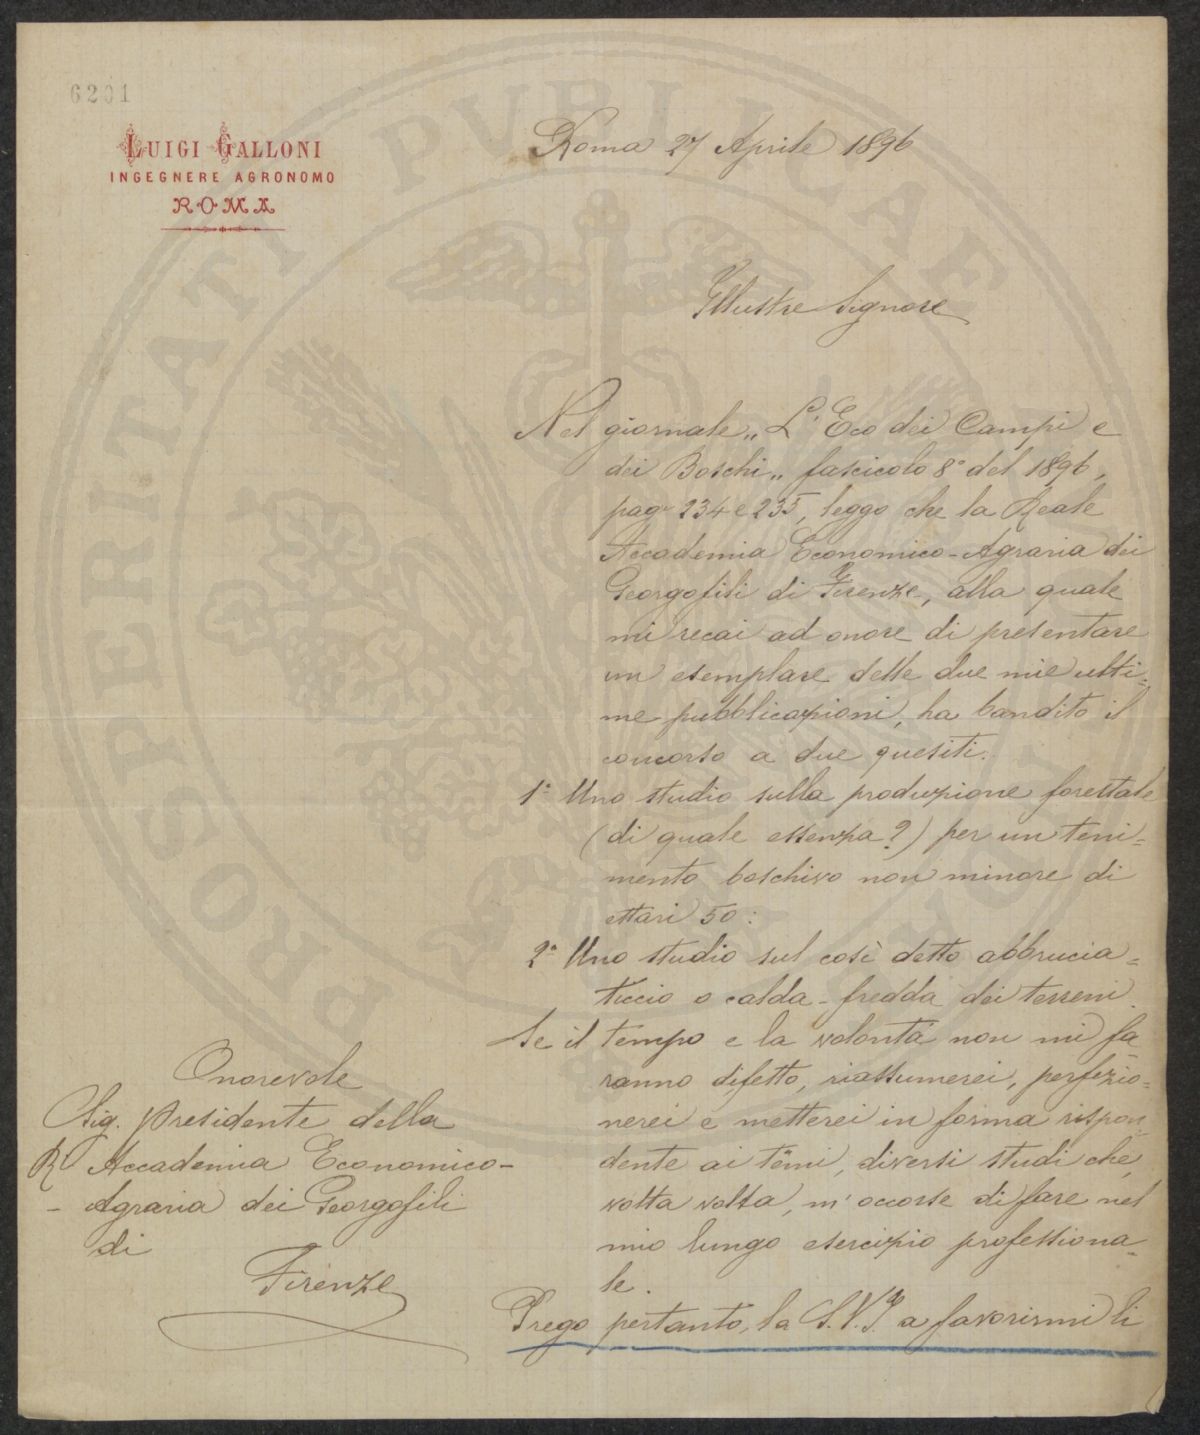 6201
LUIGI GALLONI
INGEGNERE AGRONOMO
ROMA
Roma 27 Aprile 1896
Illustre Signore
Nel giornale „ L'Eco dei Campi e
dei Boschi „ fascicolo 8° del 1896,
pag. 234 e 235, leggo che la Reale
Accademia Economico-Agraria dei
Georgofili di Firenze, alla quale
mi recai ad onore di presentare
un esemplare delle due mie ulti=
me pubblicazioni, ha bandito il
concorso a due quesiti.
1° Uno studio sulla produzione forestale
(di quale essenza?) per un teni=
mento boschivo non minore di
ettari 50:
2° Uno studio sul così detto abbrucia=
ticcio o calda-fredda dei terreni.
Se il tempo e la volontà non mi fa=
ranno difetto, riassumerei, perfezio=
nerei e metterei in forma rispon=
dente ai temi, diversi studi che,
volta volta, m'occorse di fare nel
mio lungo esercizio professiona=
le.
Prego pertanto, la S.V.I. a favorirmi li
Onorevole
Sig. Presidente della
R. Accademia Economico-
-Agraria dei Georgofili
di
Firenze
PROSPERITATI PVBLICAE